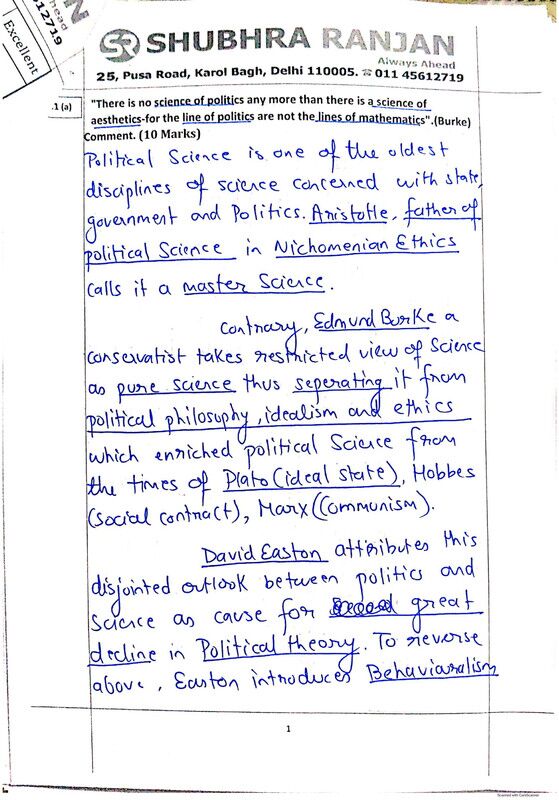 Excellent
N
head
612719
SR SHUBHRA RANJAN
Always Ahead
25, Pusa Road, Karol Bagh, Delhi 110005. ☎011 45612719
.1 (a)
"There is no science of politics any more than there is a science of
aesthetics-for the line of politics are not the lines of mathematics".(Burke)
Comment. (10 Marks)
Political Science is one of the oldest
disciplines of science concerned with state,
government and Politics. Aristotle, father of
political Science in Nichomenian Ethics
calls it a master Science.
Contrary, Edmund Burke a
conservatist takes restricted view of Science
as pure science thus seperating it from
political philosophy, idealism and ethics
which enriched political Science from
the times of Plato (ideal state), Hobbes
(Social contract), Marx (Communism).
David Easton attributes this
disjointed outlook between politics and
science as cause for great
decline in Political theory. To reverse
above, Easton introduces Behaviaralism
1
Scanned with CamScanner